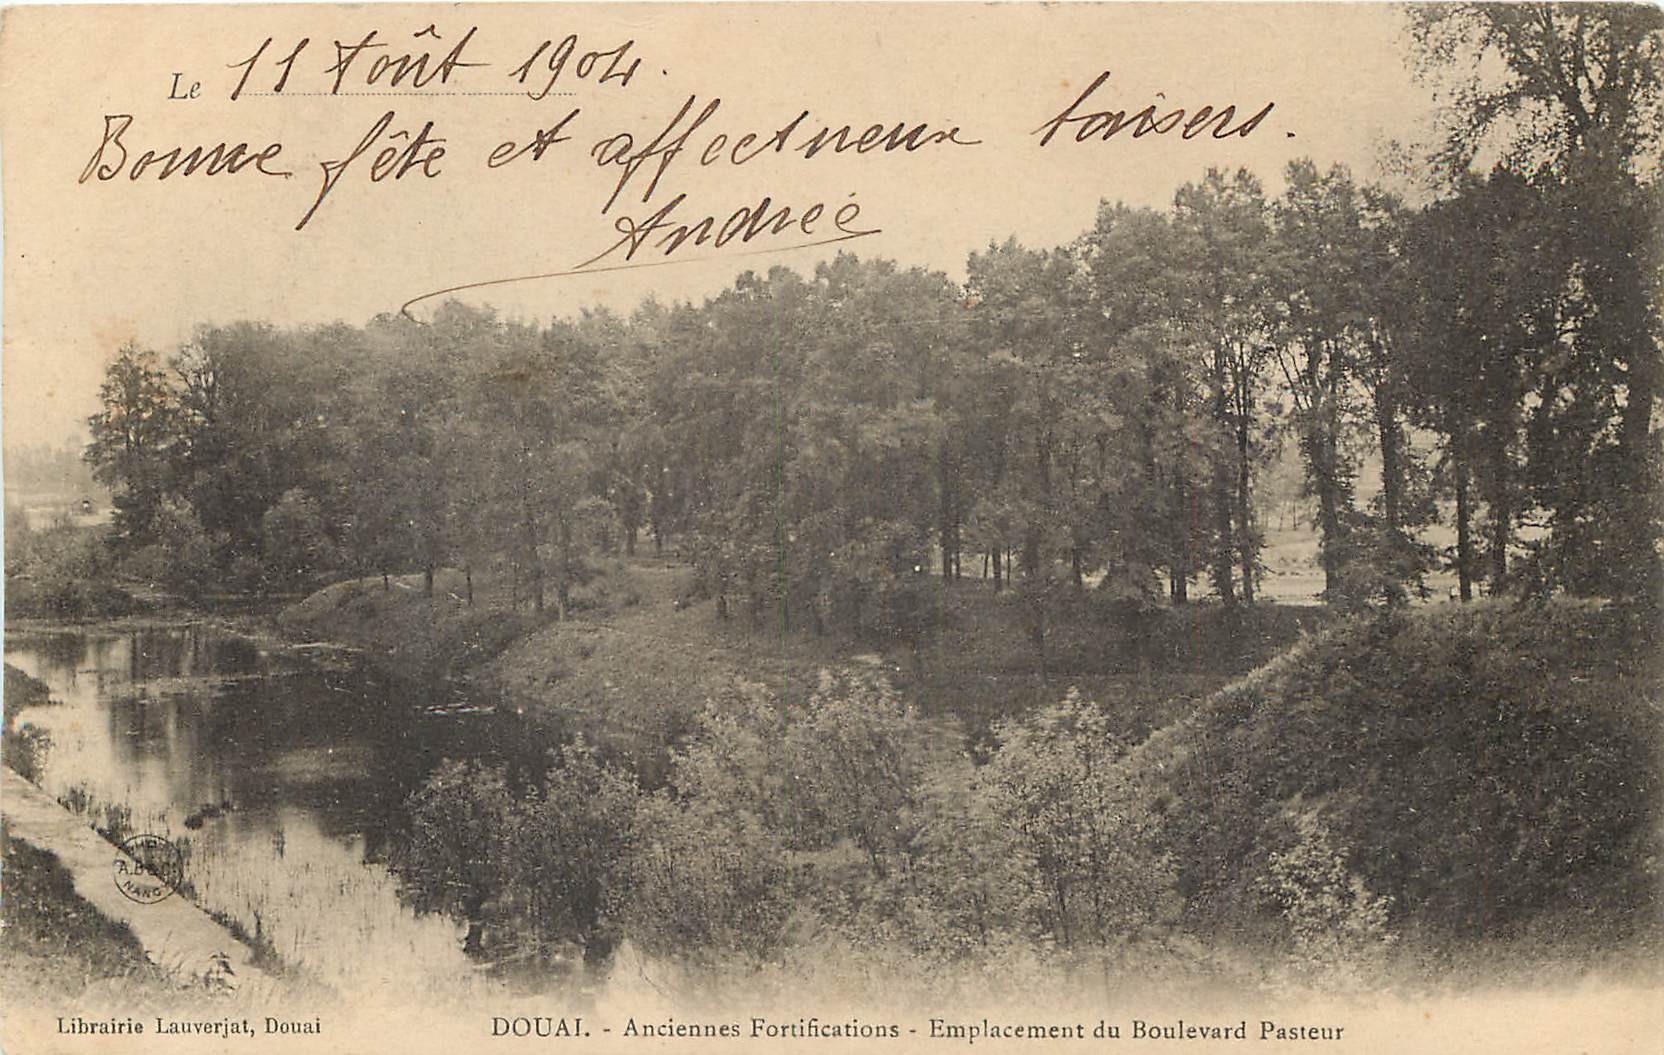 Le 11 Août 1904.
Bonne fête et affectueux baisers.
Andrée
A.B&C
NANCY
Librairie Lauverjat, Douai
DOUAI. - Anciennes Fortifications - Emplacement du Boulevard Pasteur